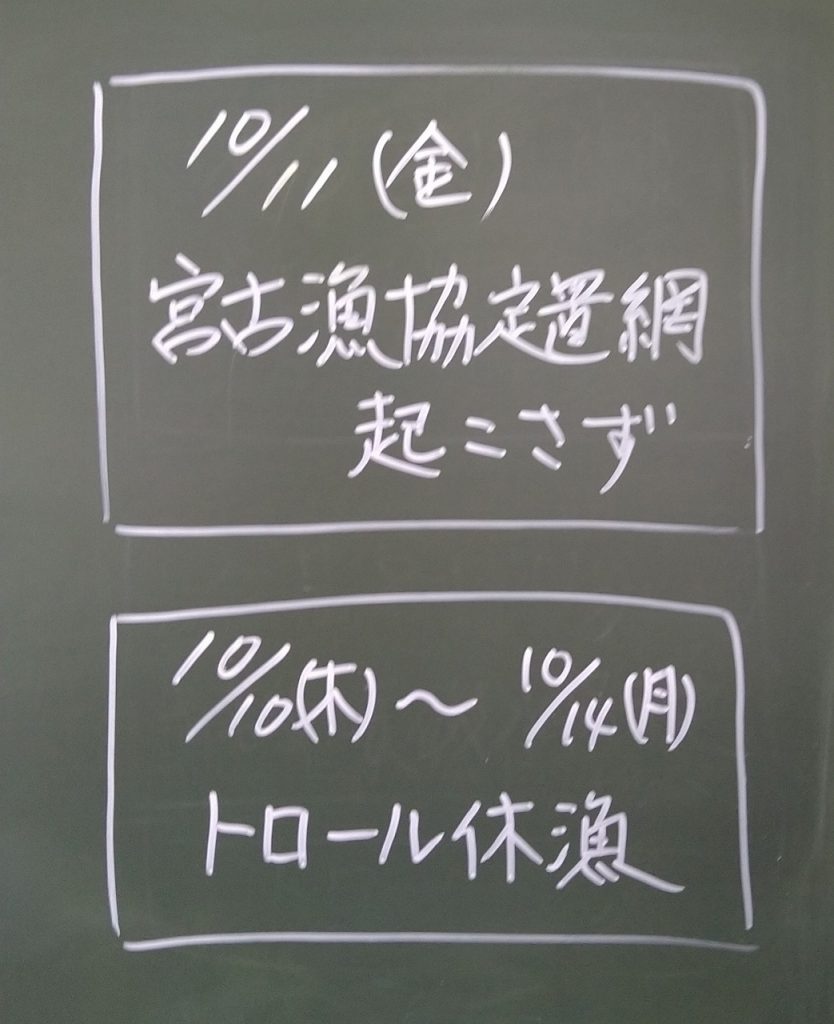 10/11(金)
宮古漁協定置網
起こさず
10/10(木)〜10/14(月)
トロール休漁